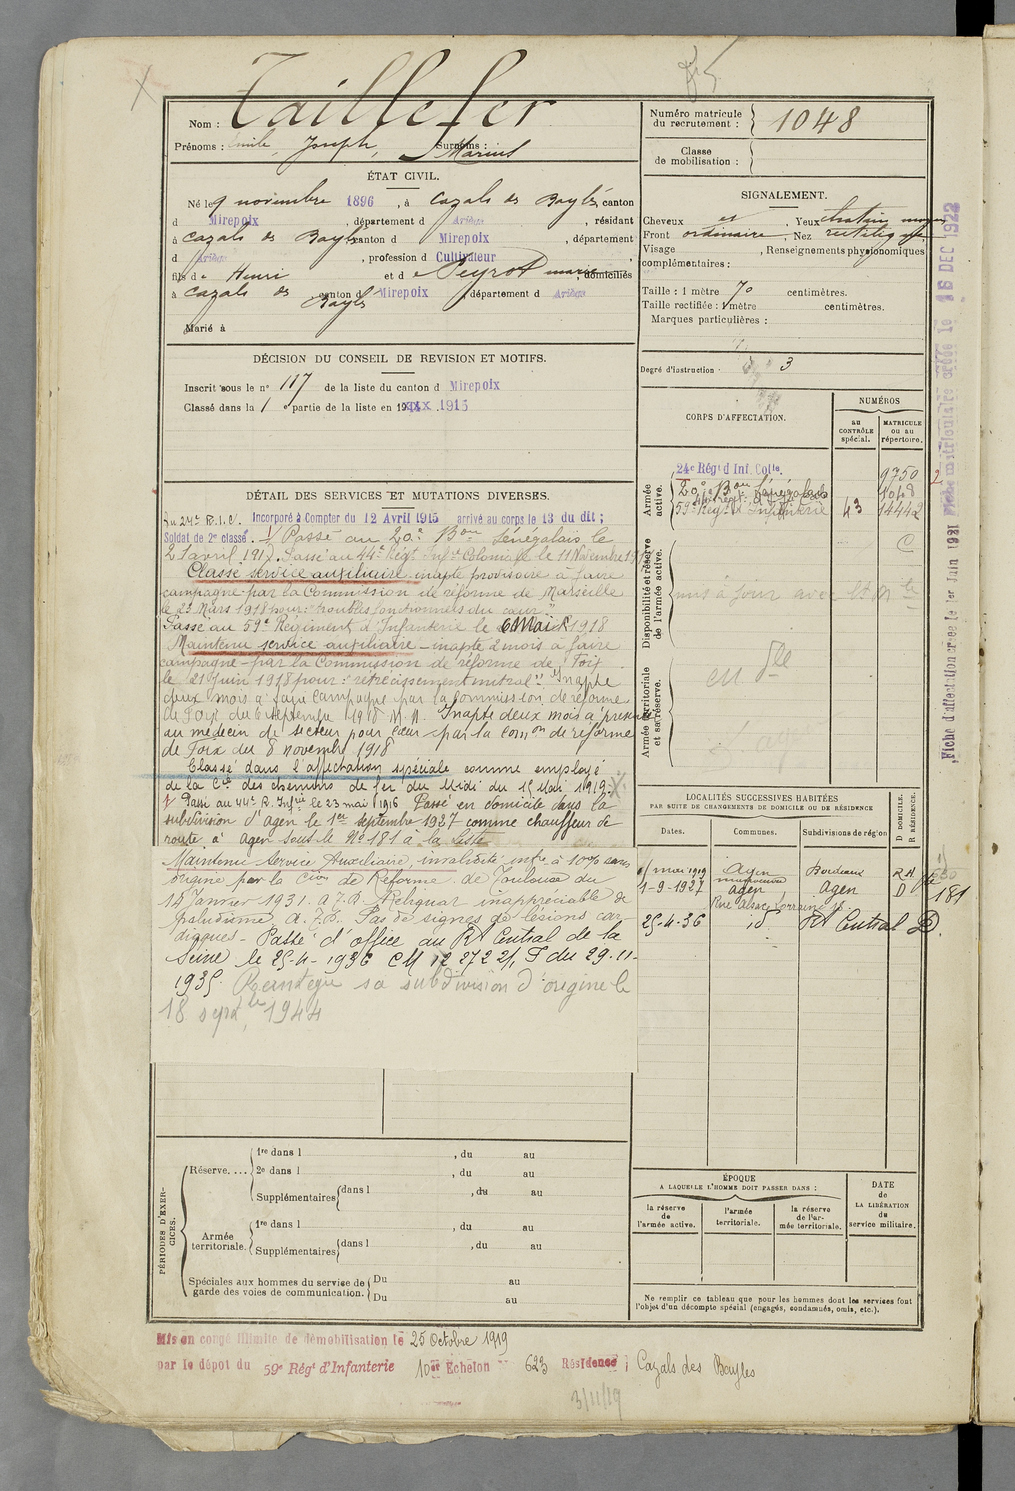 Taillefer
Nom :
Prénoms : Emile, Joseph, Surnoms : Marius
ÉTAT CIVIL.
Né le 9 novembre 1896, à Cazals des Baylès, canton
d Mirepoix, département d Ariège, résidant
à Cazals des Baylès canton d Mirepoix, département
d Ariège, profession d Cultivateur
fils de Henri et d e Peyrot marie domiciliés
à Cazals des Baylès canton d Mirepoix, département d Ariège
Marié à
DÉCISION DU CONSEIL DE REVISION ET MOTIFS.
Inscrit sous le nº 117 de la liste du canton d Mirepoix
Classé dans la 1 e partie de la liste en 19xxx 1915
DÉTAIL DES SERVICES ET MUTATIONS DIVERSES.
Au 24e R.I.C. Incorporé à Compter du 12 Avril 1915 arrivé au corps le 13 du dit ;
Soldat de 2e classé. Passé au 20e Bon Sénégalais le
21 avril 1917. Passé au 44e Régt Infie Coloniale le 11 Novembre
Classé service auxiliaire, inapte provisoire à faire
campagne par la Commission de réforme de Marseille
le 23 Mars 1918 pour : "troubles fonctionnels du cœur."
Passé au 59e Régiment d'Infanterie le 6 Mai 1918
Maintenu service auxiliaire - inapte 2 mois à faire
campagne - par la Commission de réforme de Foix
le 21 Juin 1918 pour : "rétrécissement mitral" Inapte
deux mois à faire Campagne par la Commission de réforme
de Foix du 6 septembre 1918 Inapte deux mois à présenter
au médecin de secteur pour cœur par la Comon de réforme
de Foix du 8 novembre 1918
Classé dans l'affectation spéciale comme employé
de la Cie des chemins de fer du Midi du 15 Mai 1919.
Passé au 44e R. Infie le 23 mai 1916 Passé en domicile dans la
subdivision d'Agen le 1er septembre 1927 comme chauffeur de
route à Agen sous le Nº 181 à la liste
Maintenu Service Auxiliaire, invalidité infre à 10% sans
origine par la Cion de Réforme de Toulouse du
14 Janvier 1931. Reliquat inappréciable de
paludisme Pas de signes de lésions car-
diaques - Passé d'office au Rt Central de la
Seine le 25-4-1936 CM 12 272 2/1 du 29-11-
1935. Réintègre sa subdivision d'origine le
18 septbre 1944
PÉRIODES D'EXERCICES.
Réserve.... 1re dans l , du au
2e dans l , du au
Supplémentaires dans l , du au
Armée territoriale. 1re dans l , du au
Supplémentaires dans l , du au
Spéciales aux hommes du service de garde des voies de communication. Du au
Du au
Numéro matricule du recrutement : 1048
Classe de mobilisation :
SIGNALEMENT.
Cheveux et , Yeux chatain moyen
Front ordinaire , Nez rectiligne
Visage , Renseignements physionomiques
complémentaires :
Taille : 1 mètre 70 centimètres.
Taille rectifiée : 1 mètre centimètres.
Marques particulières :
Degré d'instruction 3
CORPS D'AFFECTATION.
NUMÉROS
au CONTRÔLE spécial.
MATRICULE ou au répertoire.
Armée active.
24e Régt d Inf. Colle. 9750
20e Bon Sénégalais 1048
59e Régt d'Infanterie 43 14442
Disponibilité et réserve de l'armée active.
mis à jour avec
Armée territoriale et sa réserve.
LOCALITÉS SUCCESSIVES HABITÉES
PAR SUITE DE CHANGEMENTS DE DOMICILE OU DE RÉSIDENCE
Dates. Communes. Subdivisions de région D DOMICILE. R RÉSIDENCE.
mai 1919 Agen Bordeaux
1-9-1927 Agen Agen D 181
Rue Alsace Lorraine
25-4-36 id. Rt Central D.
ÉPOQUE
A LAQUELLE L'HOMME DOIT PASSER DANS :
la réserve de l'armée active.
l'armée territoriale.
la réserve de l'armée territoriale.
DATE de LA LIBÉRATION du service militaire.
Ne remplir ce tableau que pour les hommes dont les services font
l'objet d'un décompte spécial (engagés, condamnés, omis, etc.).
Fiche d'affectation créée le 1er Juin 1921 Fiche matriculaire créée le 16 DEC 1922
Mis en congé illimité de démobilisation le 25 Octobre 1919
par le dépôt du 59e Régt d'Infanterie 10er Echelon nº 623 Résidence : Cazals des Baylès
3/11/19